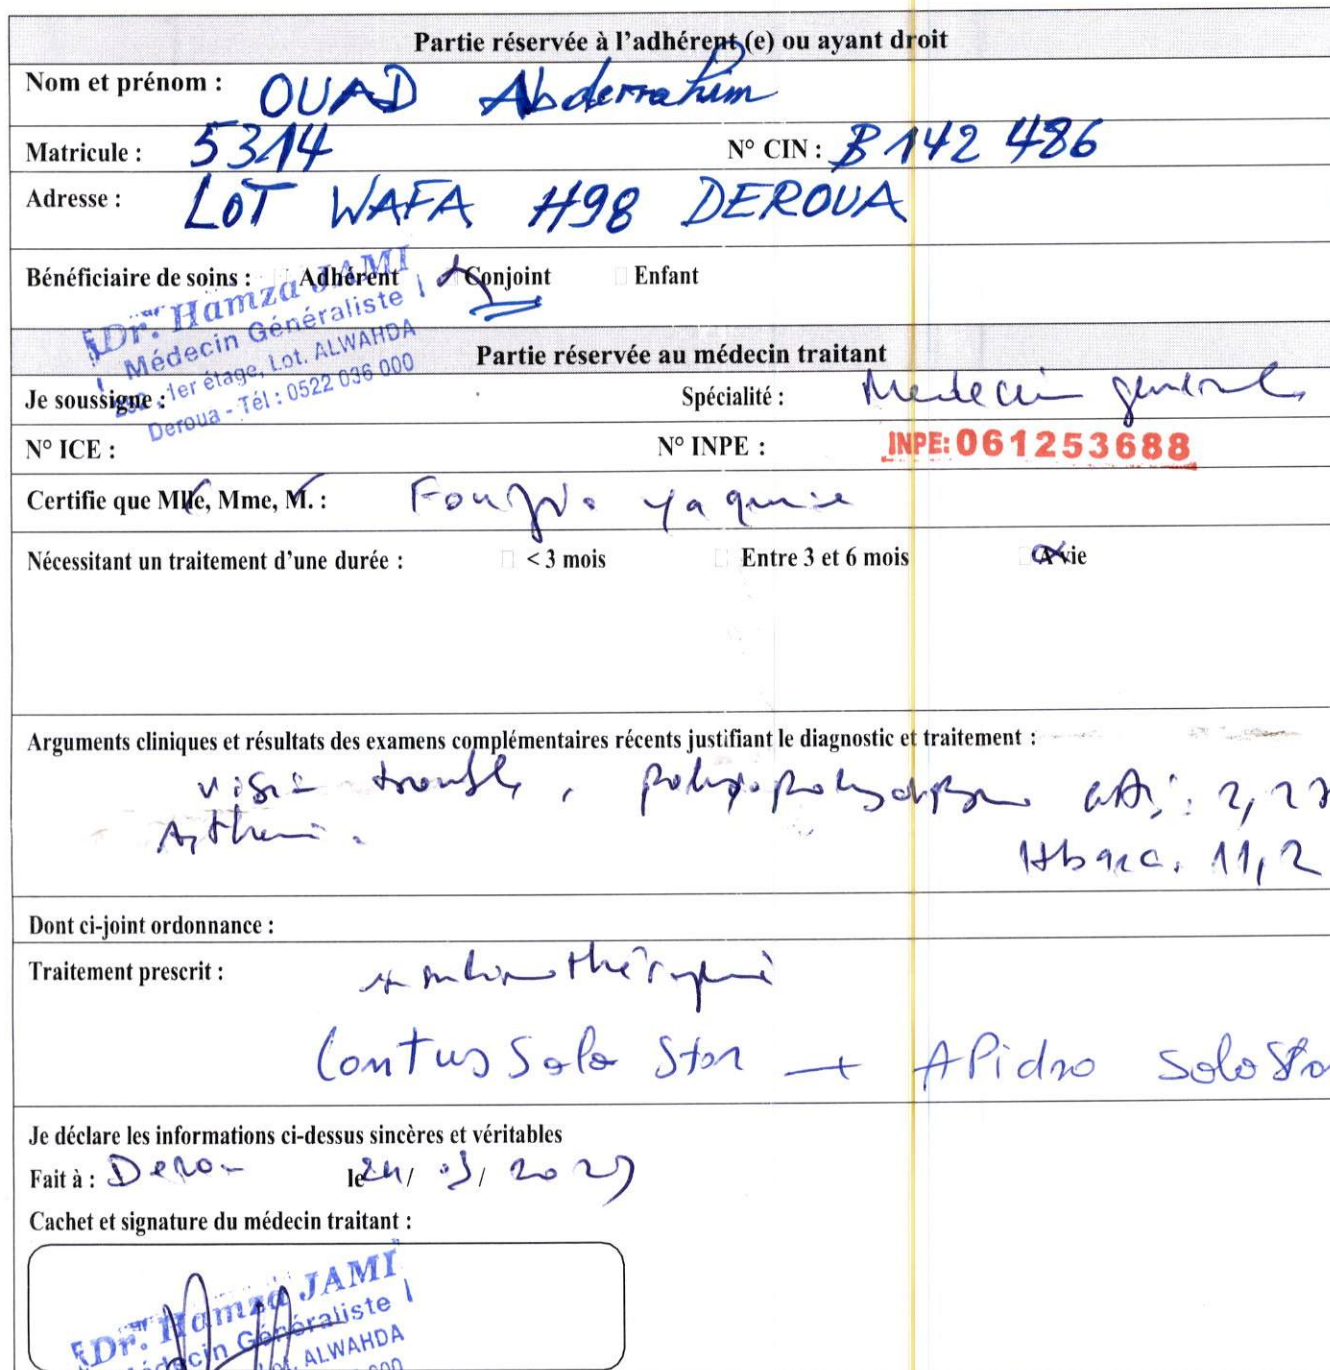 Partie réservée à l'adhérent (e) ou ayant droit
Nom et prénom : OUAD Abderrahim
Matricule : 5314 N° CIN : B 142 486
Adresse : LOT WAFA H98 DEROUA
Bénéficiaire de soins : Adhérent Conjoint Enfant
Dr. Hamza JAMI
Médecin Généraliste
1er étage, Lot. ALWAHDA
Deroua - Tél : 0522 036 000
Partie réservée au médecin traitant
Je soussigne : Spécialité : Medecin general
N° ICE : N° INPE : INPE: 061253688
Certifie que Mlle, Mme, M. :
Nécessitant un traitement d'une durée : < 3 mois Entre 3 et 6 mois A vie
Arguments cliniques et résultats des examens complémentaires récents justifiant le diagnostic et traitement :
trouble, 2,27
11,2
Dont ci-joint ordonnance :
Traitement prescrit :
Lantus Solo Star + APidra Solo Sta
Je déclare les informations ci-dessus sincères et véritables
Fait à : le
Cachet et signature du médecin traitant :
Dr. Hamza JAMI
Médecin Généraliste
Lot. ALWAHDA
000